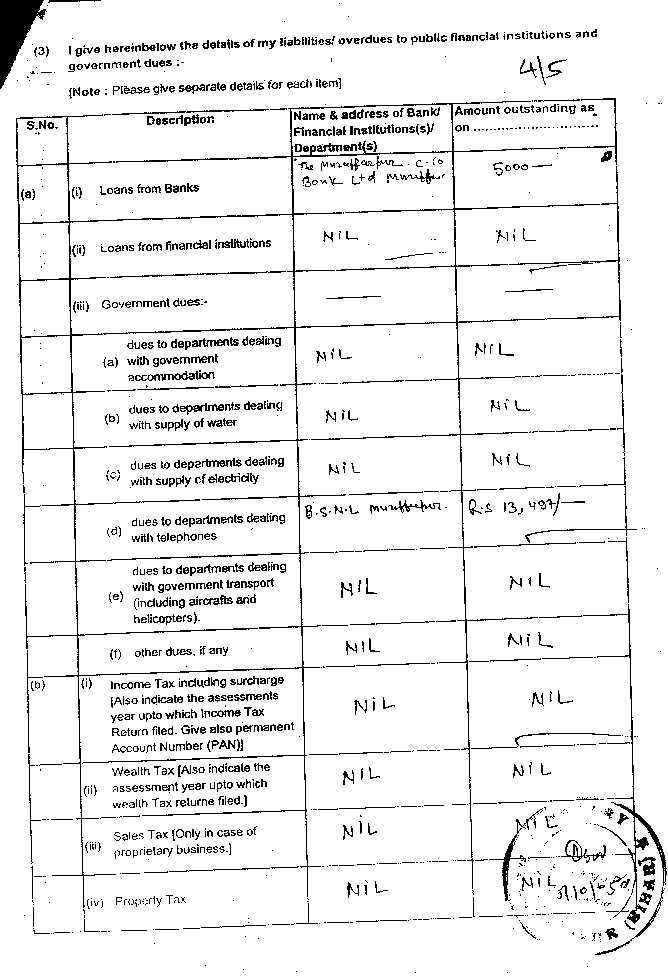 (3) I give hereinbelow the details of my liabilities/ overdues to public financial institutions and
government dues :-
4/5
[Note : Please give separate details for each item]
S.No. Description Name & address of Bank/ Amount outstanding as
Financial Institutions(s)/ on ..............................
Department(s)
(a) (i) Loans from Banks The Muzaffarpur C.Co 5000—
Bank Ltd
(ii) Loans from financial institutions NIL NIL
(iii) Government dues:- —— ——
dues to departments dealing
(a) with government NIL NIL
accommodation
(b) dues to departments dealing NIL NIL
with supply of water
(c) dues to departments dealing NIL NIL
with supply of electricity
(d) dues to departments dealing B.S.N.L Muzaffarpur. R.S 13,497/—
with telephones
dues to departments dealing
with government transport
(e) (including aircrafts and NIL NIL
helicopters).
(f) other dues, if any NIL NIL
(b) (i) Income Tax including surcharge
[Also indicate the assessments
year upto which Income Tax NIL NIL
Return filed. Give also permanent
Account Number (PAN)]
Wealth Tax [Also indicate the
(ii) assessment year upto which NIL NIL
wealth Tax returne filed.]
(iii) Sales Tax [Only in case of NIL NIL
proprietary business.]
(iv) Property Tax NIL NIL
(BIHAR)